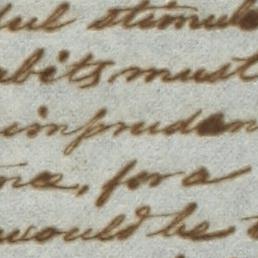 ful stimul
abits must
impruden
nce, for a
would be